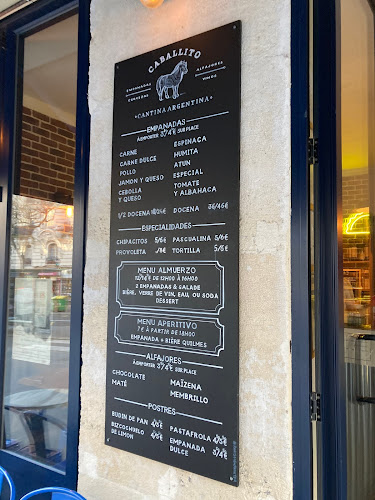 CABALLITO
EMPANADAS
PICADITAS
ALFAJORES
VINOS
•CANTINA ARGENTINA•
EMPANADAS
À EMPORTER 3/4€ SUR PLACE
CARNE
CARNE DULCE
POLLO
JAMON Y QUESO
CEBOLLA
Y QUESO
ESPINACA
HUMITA
ATUN
ESPECIAL
TOMATE
Y ALBAHACA
1/2 DOCENA 18/23€ DOCENA 36/46€
ESPECIALIDADES
CHIPACITOS 5/6€ PASCUALINA 5/6€
PROVOLETA TORTILLA 5/6€
MENU ALMUERZO
12/14€ DE 12H00 À 16H00
2 EMPANADAS & SALADE
BIÈRE, VERRE DE VIN, EAU, OU SODA
DESSERT
MENU APERITIVO
7€ À PARTIR DE 18H00
EMPANADA + BIÈRE QUILMES
ALFAJORES
À EMPORTER 3/4€ SUR PLACE
CHOCOLATE
MATÉ
MAÏZENA
MEMBRILLO
POSTRES
BUDIN DE PAN 4/5€
BIZCOCHUELO
DE LIMON 4/5€
PASTAFROLA 4/5€
EMPANADA
DULCE 3/4€